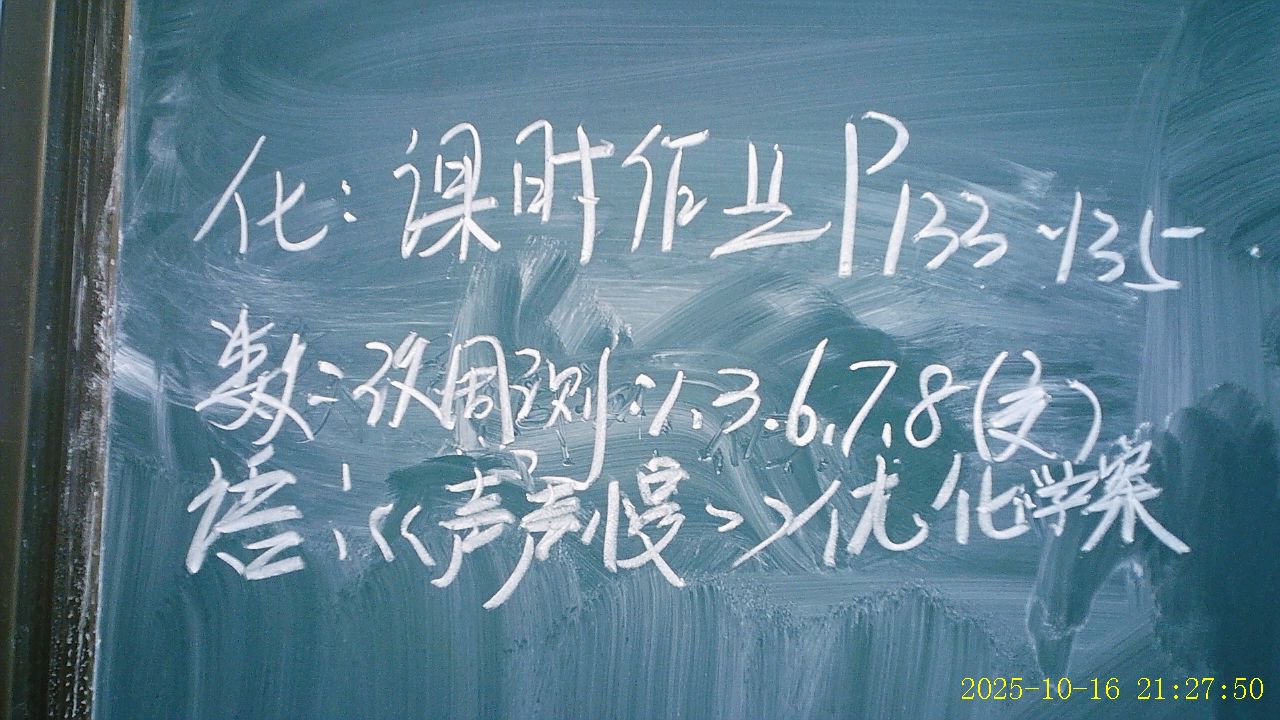 化:课时作业P133~135
数:改周测:1.3.6.7.8(交)
语:《声声慢》优化学案
2025-10-16 21:27:50